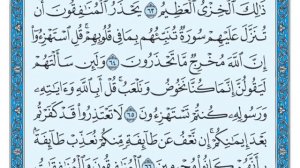 ذَٰلِكَ ٱلْخِزْىُ ٱلْعَظِيمُ ٦٣ يَحْذَرُ ٱلْمُنَٰفِقُونَ أَن
تُنَزَّلَ عَلَيْهِمْ سُورَةٌ تُنَبِّئُهُم بِمَا فِى قُلُوبِهِمْ قُلِ ٱسْتَهْزِءُوٓا۟
إِنَّ ٱللَّهَ مُخْرِجٌ مَّا تَحْذَرُونَ ٦٤ وَلَئِن سَأَلْتَهُمْ
لَيَقُولُنَّ إِنَّمَا كُنَّا نَخُوضُ وَنَلْعَبُ قُلْ أَبِٱللَّهِ وَءَايَٰتِهِۦ
وَرَسُولِهِۦ كُنتُمْ تَسْتَهْزِءُونَ ٦٥ لَا تَعْتَذِرُوا۟ قَدْ كَفَرْتُم
بَعْدَ إِيمَٰنِكُمْ إِن نَّعْفُ عَن طَآئِفَةٍ مِّنكُمْ نُعَذِّبْ طَآئِفَةًۢ